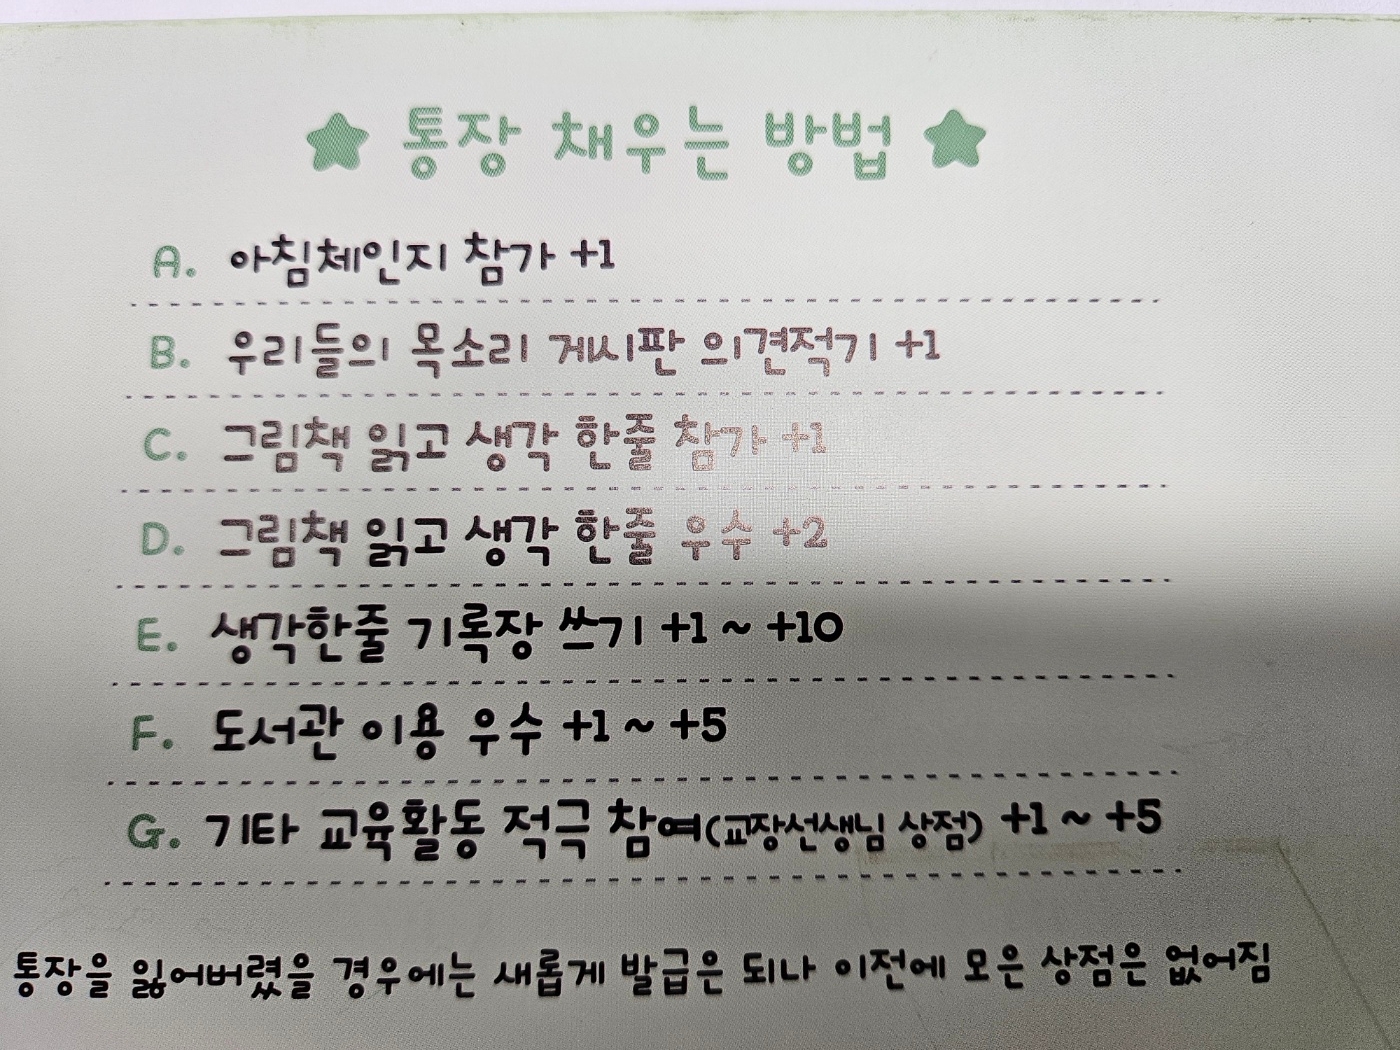 ★ 통장 채우는 방법 ★
A. 아침체인지 참가 +1
B. 우리들의 목소리 게시판 의견적기 +1
C. 그림책 읽고 생각 한줄 참가 +1
D. 그림책 읽고 생각 한줄 우수 +2
E. 생각한줄 기록장 쓰기 +1 ~ +10
F. 도서관 이용 우수 +1 ~ +5
G. 기타 교육활동 적극 참여(교장선생님 상점) +1 ~ +5
통장을 잃어버렸을 경우에는 새롭게 발급은 되나 이전에 모은 상점은 없어짐